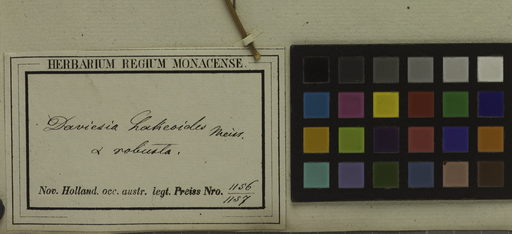 HERBARIUM REGIUM MONACENSE.
Daviesia hakeoides Meiss.
α robusta.
Nov. Holland. occ. austr. legt. Preiss Nro. 1156
1157